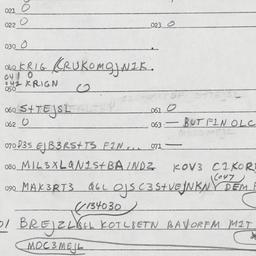 021 0
022 0 023 0
030 0
040 KRIG (RUKOMOJNIK.
041 0
042 KRIGN
050 0
060 S+TEJSL 061 0
062 0 063 — BUT FIN OLC
070 D3S EJB3RS+TS FIN... 071 —
080 MIL3XLQN1S+BA INDZ KOV3 C1KOR
090 MAK3RT3 QGL OJSC3S+VEJNKN DEM
(134030
BREJZL KOTLBETN BAVORFM MIT
MOC3MEJL